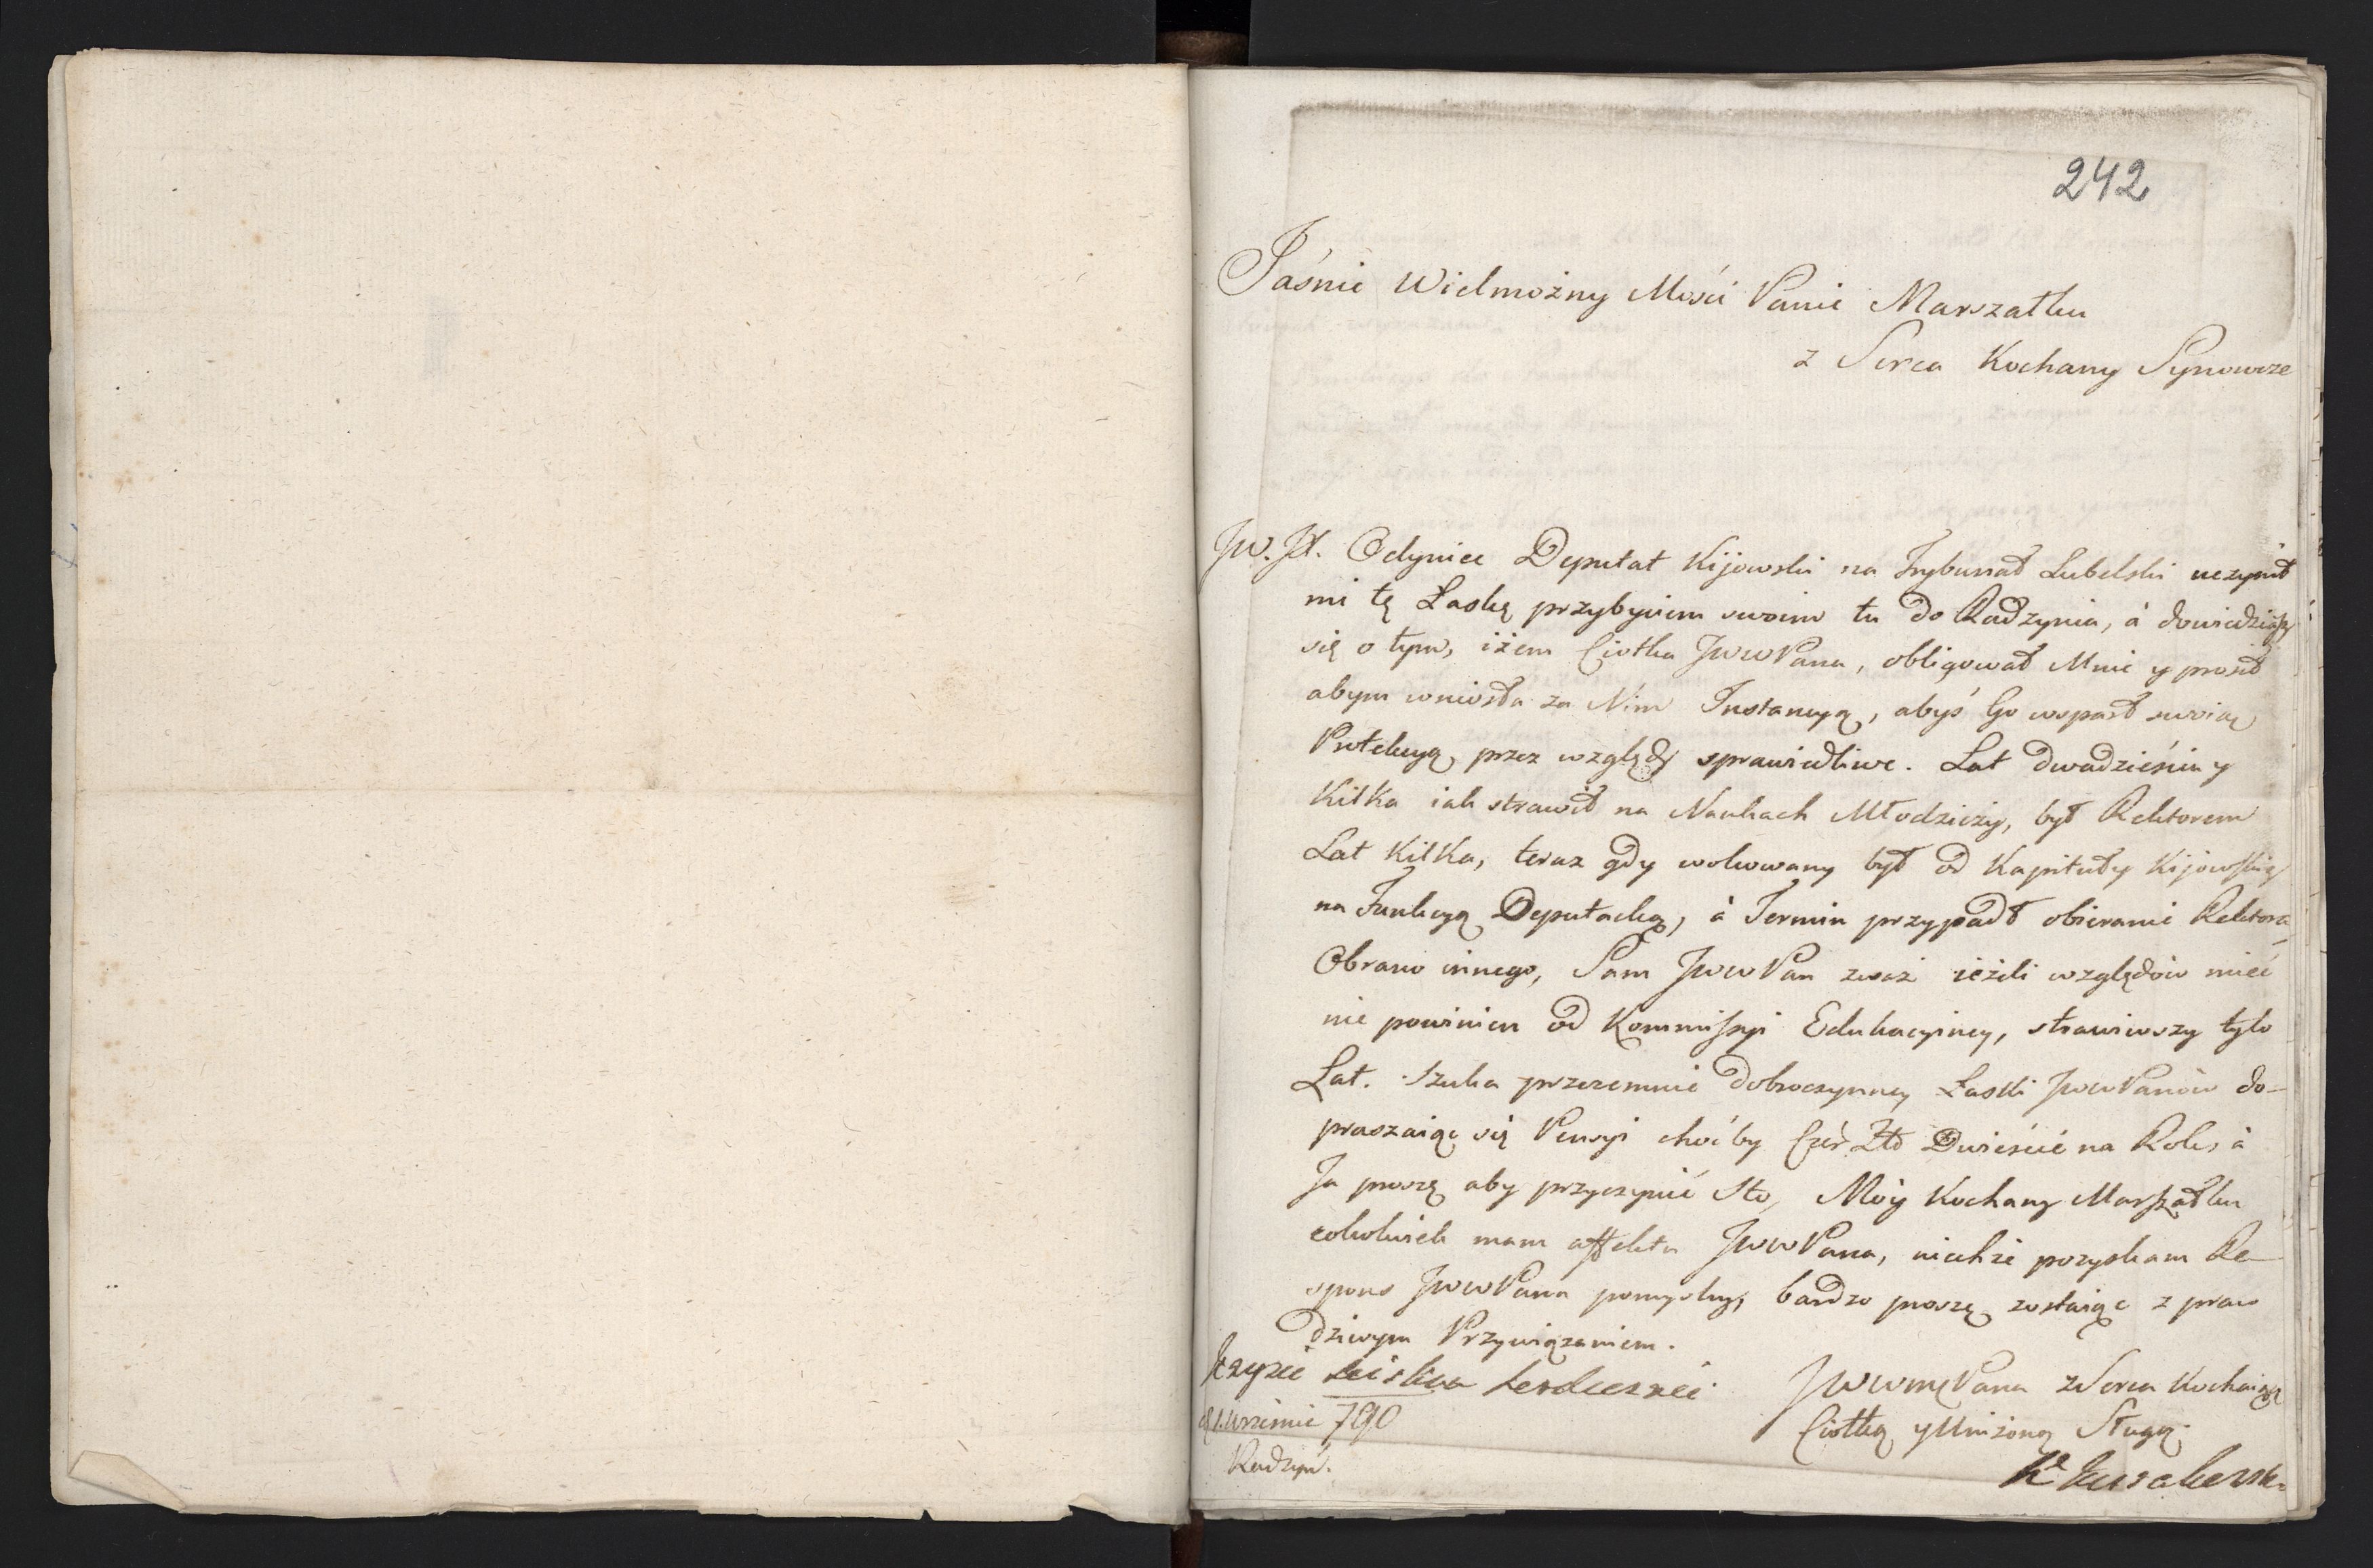 242
Jaśnie Wielmożny Mości Panie Marszałku
z Serca Kochany Synowcze
JW. JX. Odyniec Deputat Kijowski na Trybunał Lubelski uczynił
mi tę Łaskę przybyciem swoim tu do Radzynia, à dowiedziawszy
się o tym, iżem Ciotka JWWPana, obligował Mnie y prosił
abym wniosła za Nim Instancyą, abyś Go wsparł swoią
Protekcyą przez względy sprawiedliwe. Lat dwadzieścia y
Kilka iak strawił na Naukach Młodzieży, był Rektorem
Lat Kilka, teraz gdy wokowany był od Kapituły Kijowskiey
na Funkcyą Deputacką, à Termin przypadł obieranie Rektora
Obrano innego, Sam JWWPan zważ ieżeli względów mieć
nie powinien od Kommissyi Edukacyiney, strawiwszy tylo
Lat. Szuka przezemnie dobroczynney Łaski JWWPanów do-
praszaiąc się Pensyi choćby Czer Złó Dwieście na Rok, à
Ja proszę aby przyczynić Sto, Móy Kochany Marszałku
cokolwiek mam affektu JWWPana, niechże pozyskam Re-
spons JWWPana pomyslny, bardzo proszę zostaiąc z praw
dziwym Przywiązaniem.
JWWmćPana z Serca Kochaiącą
Ciotką y Uniżoną Sługą.
d 1. wrzesnie 790
Radzyń.